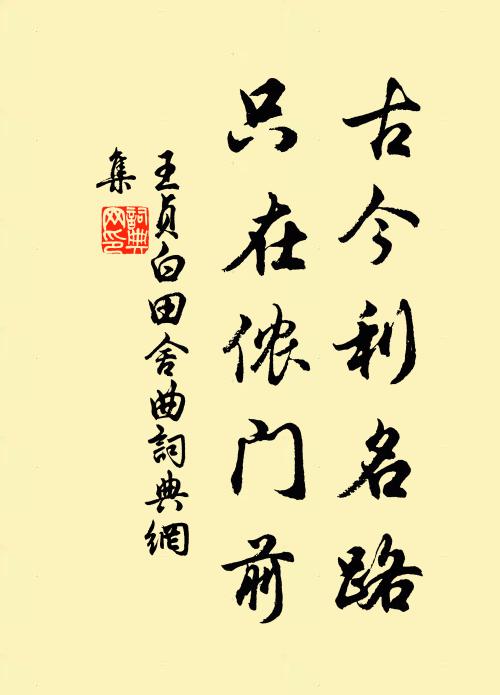 古今利名路
只在侬门前
王贞白田舍曲詞典網
集
詞典网印